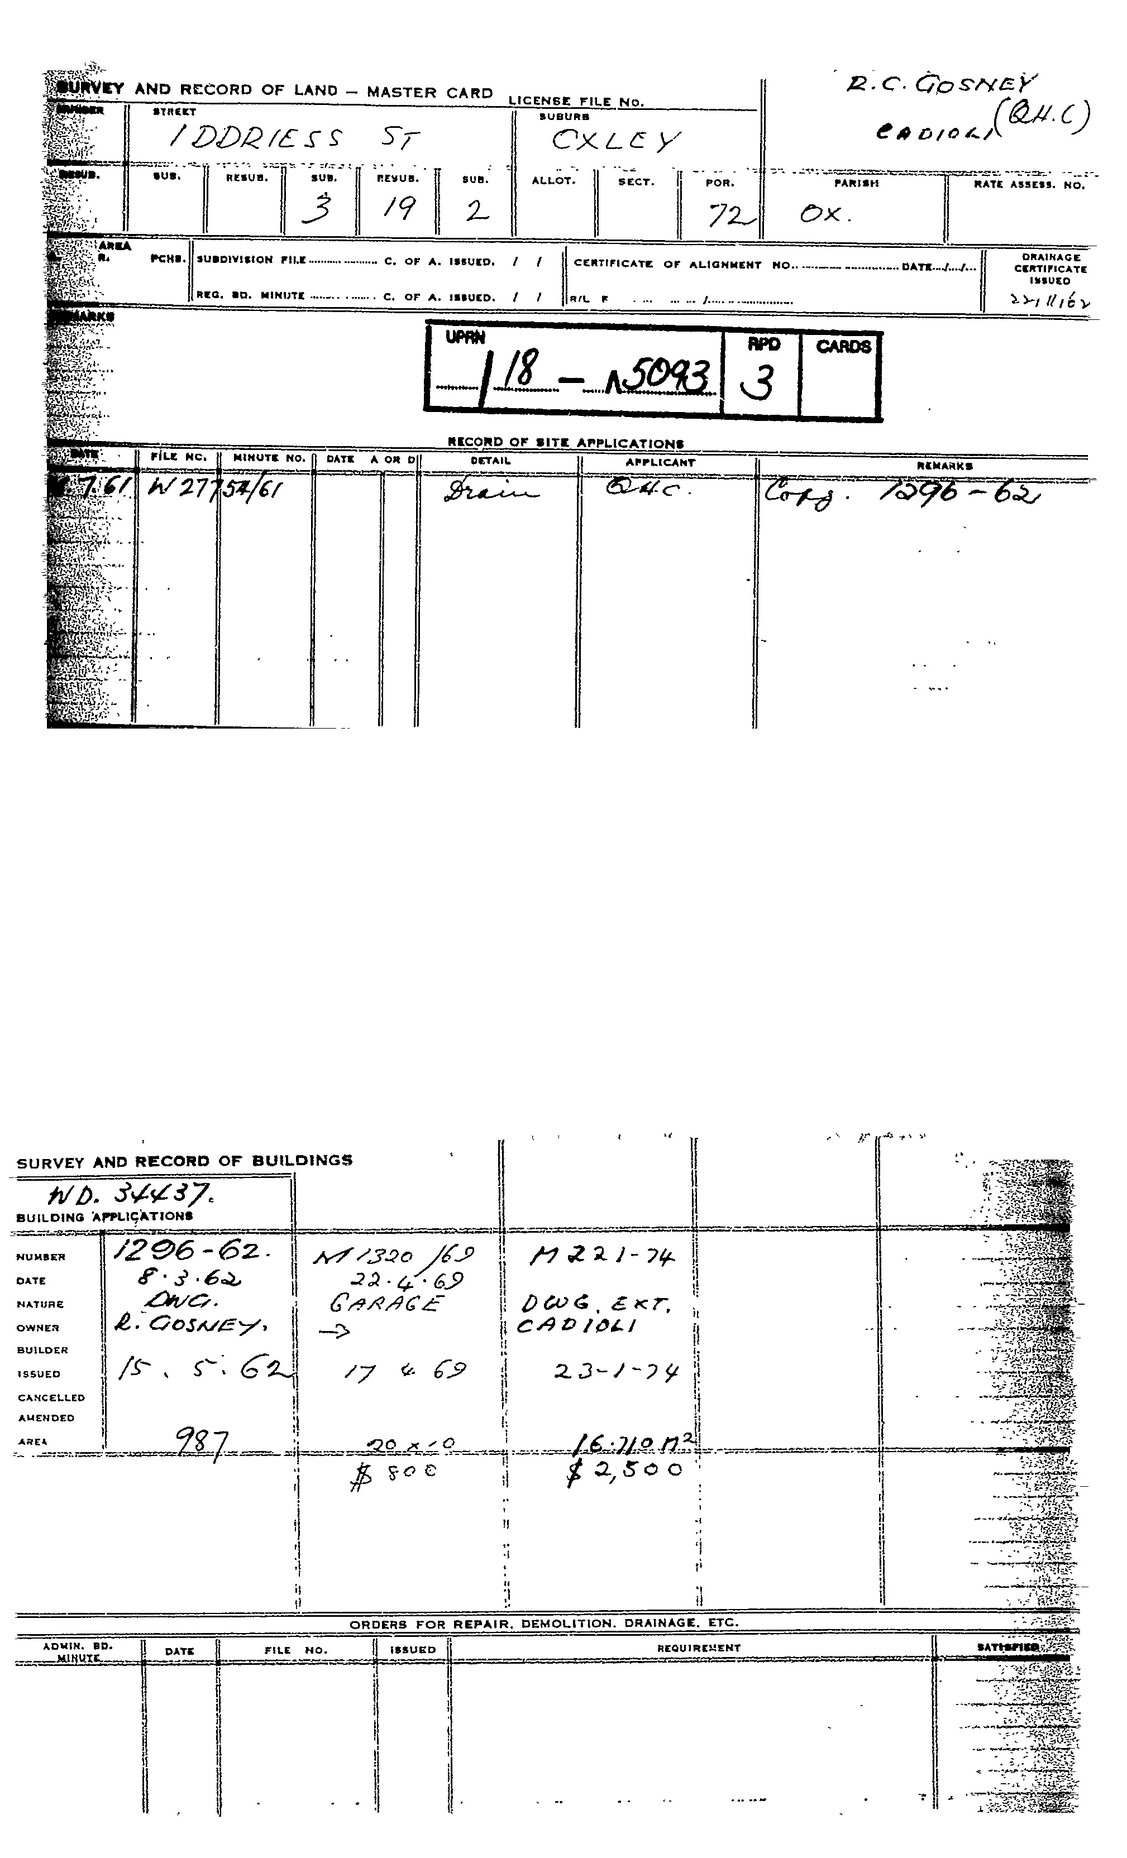 SURVEY AND RECORD OF LAND – MASTER CARD LICENSE FILE No.
R.C. GOSNEY
(Q.H.C)
CADIOLI
NUMBER STREET SUBURB
IDDRIESS ST OXLEY
RESUB. SUB. RESUB. SUB. RESUB. SUB. ALLOT. SECT. POR. PARISH RATE ASSESS. NO.
3 19 2 72 OX.
AREA
R. PCHS. SUBDIVISION FILE C. OF A. ISSUED. / / CERTIFICATE OF ALIGNMENT NO. DATE / / DRAINAGE CERTIFICATE ISSUED
REG. BD. MINUTE C. OF A. ISSUED. / / R/L F /
22/11/62
REMARKS
UPRN RPD CARDS
/ 18 – 5093 3
RECORD OF SITE APPLICATIONS
DATE FILE NO. MINUTE NO. DATE A OR D DETAIL APPLICANT REMARKS
7.61 W 27754/61 Drain Q.H.C. 1296-62
SURVEY AND RECORD OF BUILDINGS
WD. 34437.
BUILDING APPLICATIONS
NUMBER 1296-62. M 1320/69 M 221-74
DATE 8.3.62 22.4.69
NATURE DWG. GARAGE DWG. EXT.
OWNER R. GOSNEY. → CADIOLI
BUILDER
ISSUED 15.5.62 17 4 69 23-1-74
CANCELLED
AMENDED
AREA 987 20 x 10 16.710 M²
$ 800 $ 2,500
ORDERS FOR REPAIR, DEMOLITION, DRAINAGE, ETC.
ADMIN. BD. MINUTE DATE FILE NO. ISSUED REQUIREMENT SATISFIED